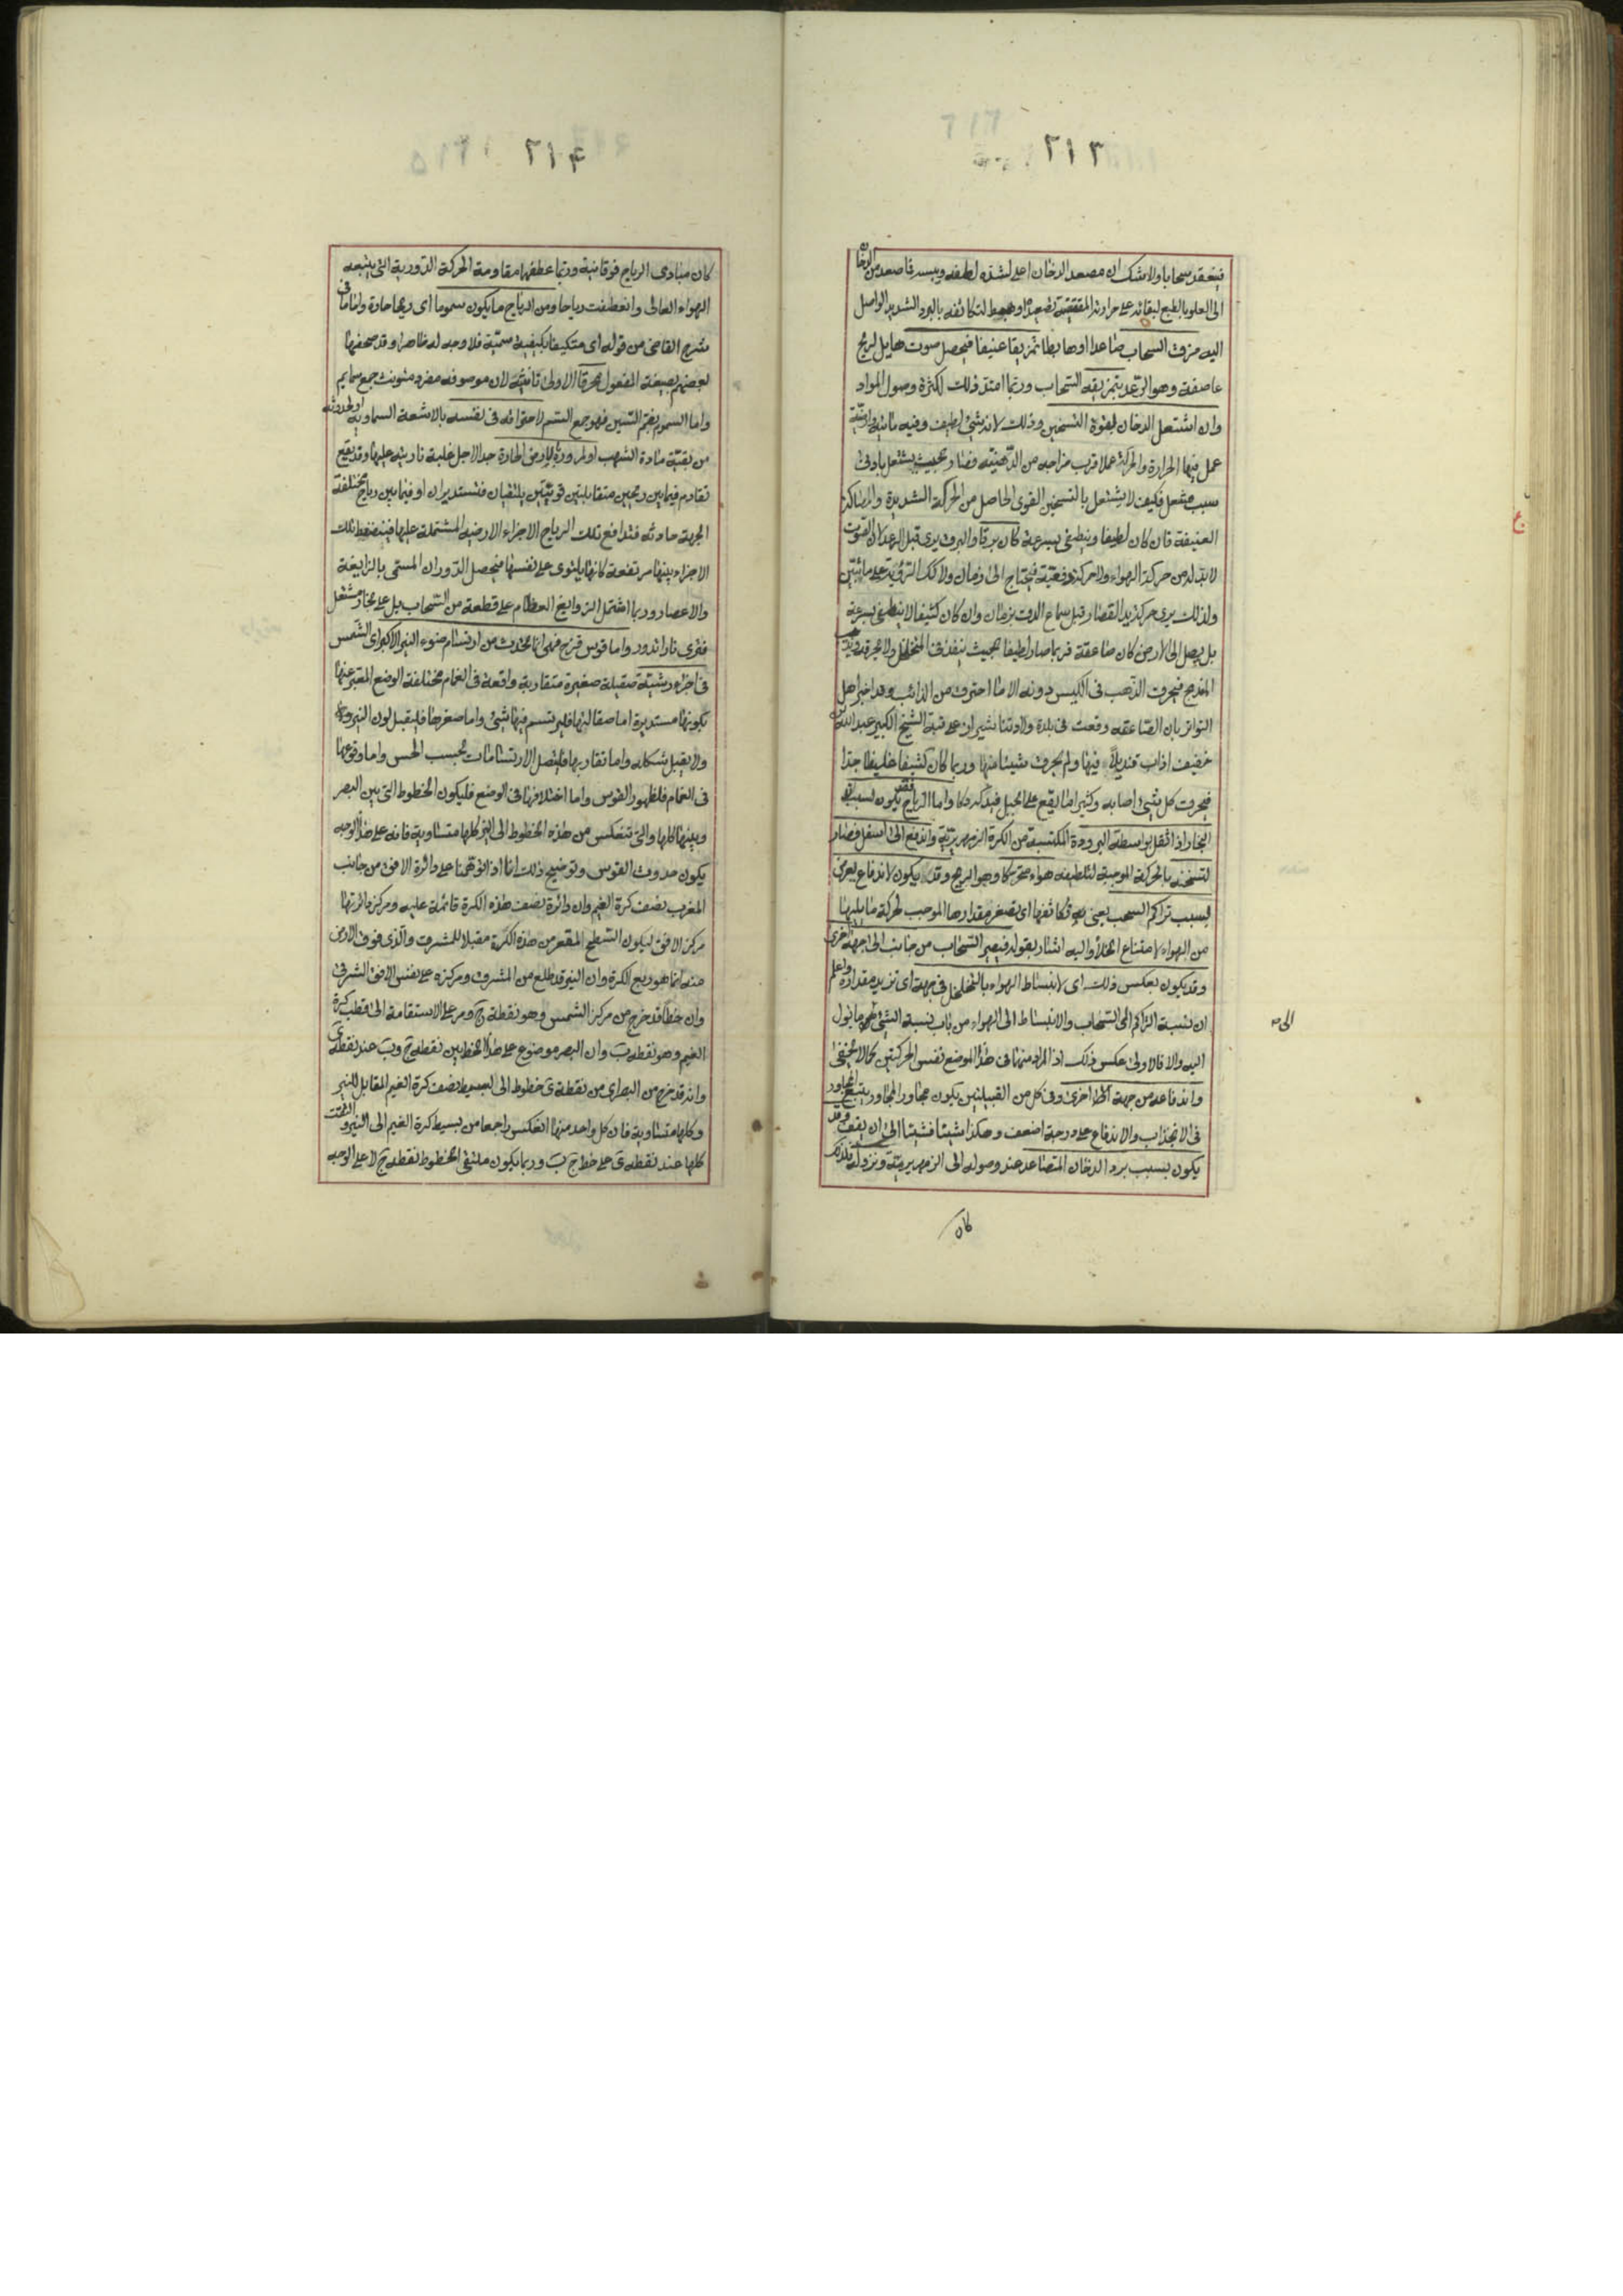 ٢١٣
فينعقد سحابا ولا شك ان مصعد الدخان اعلى لشدة لطفه ويبسه فما صعد من الدخان
الى العلو بالطبع لبقائه على حرارته المقتضية تصعيدا وهبط لتكاثفه بالبرد الشديد الواصل
اليه مزق السحاب صاعدا او هابطا تمزيقا عنيفا فيحصل صوت هايل لريح
عاصفة وهو الرعد بتمزيقه السحاب وربما امتد ذلك لكثرة وصول المواد
وان اشتعل الدخان لقوة التسخين وذلك لانه شئ لطيف وفيه مائية وارضية
عمل فيها الحرارة والحركة عملا قرب مزاجه من الدهنية فصار بحيث يشتعل بادنى
سبب مشعل فكيف لا يشتعل بالتسخين القوى الحاصل من الحركة الشديدة والمصاكة
العنيفة فان كان لطيفا وينطفئ بسرعة كان برقا والبرق يرى قبل الرعد لان الصوت
لابد له من حركة الهواء ولا حركة دفعية فيحتاج الى زمان ولا كذلك الرؤية على ما تبين
ولذلك يرى حركة يد القصار قبل سماع الدق بزمان وان كان كثيفا لا ينطفئ بسرعة
بل يصل الى الارض كان صاعقة فربما صار لطيفا بحيث ينفذ فى المتخلخل ولا يحرقه ويذيب
المندمج فيحرق الذهب فى الكيس دونه الا ما احترق من الذائب وقد اخبر اهل
التواتر بان الصاعقه وقعت فى بلدة ولادتنا شيراز على قبة الشيخ الكبير عبد الله بن
خفيف اذاب قنديلا فيها ولم يحرق شيئا منها وربما كان كثيفا غليظا جدا
فيحرق كل شئ اصابه وكثيرا ما يقع على الجبل فيدكه دكا واما الرياح فقد يكون لسبب ان
البخار اذا اثقل بواسطة البرودة المكتسبة من الكرة الزمهريرية واندفع الى اسفل فصار
لتسخنه بالحركة الموجبة لتلطيفه هواء متحركا وهو الريح وقد يكون لاندفاع يعرض
لسبب تراكم السحب يعنى به تكاثفها اى تصغر مقدارها الموجب لحركة ما يليها
من الهواء لامتناع الخلأ واليه اشار بقوله فيصير السحاب من جانب الى جهة اخرى
وقد يكون بعكس ذلك اى لانبساط الهواء بالتخلخل فى جهة اى تزيد مقداره واعلم
ان نسبة التراكم الى السحاب والانبساط الى الهواء من باب نسبة الشئ الى ما يؤل
اليه والا فالاولى عكس ذلك اذ المراد منهما فى هذا الموضع نفس الحركتين كما لا يخفى
واندفاعه من جهة الى اخرى وفى كل من القبيلتين يكون مجاور المجاور يتبع المجاور
فى الانجذاب والاندفاع على درجة اضعف وهكذا شيئا فشيئا الى ان يقف وقد
يكون بسبب برد الدخان المتصاعد عند وصوله الى الزمهريرية ونزوله فلذلك
الى
كان
٢١٤
كان مبادى الرياح فوقانية وربما عطفها مقاومة الحركة الدورية التى يتبعه
الهواء العالى وانعطفت رياحا ومن الرياح ما يكون سموما اى ريحا حادة واما ما فى
شرح القاضى من قوله اى متكيفا بكيفية سمية فلا وجه له ظاهرا وقد صحفها
بعضهم بصيغة المفعول محرقا الاولى تانيثه لان موصوفه مفرد مئونث جمع سمايم
واما السموم بضم السين فهو جمع السم لاحتراقه فى نفسه بالاشعة السماوية او لحدوثه
من بقية مادة الشهب او لمروره بالارض الحارة جدا لاجل غلبة نارية عليها وقد يقع
تقادم فيما بين ريحين متقابلتين قويتين يلتقيان فتستديران او فيما بين رياح مختلفة
الجهة حادثه فتدافع تلك الرياح الاجزاء الارضية المشتملة عليها فينضغط تلك
الاجزاء بينها مرتفعة كانها يلتوى على نفسها فيحصل الدوران المسمى بالزابعة
والاعصار وربما اشتمل الزوابع العظام على قطعة من السحاب بل على بخار مشتعل
فترى نارا تدور واما قوس قزح فهى انما يحدث من ارتسام ضوء النير الاكبر اى الشمس
فى اجزاء رشية صقيلة صغيرة متقاربة واقعة فى الغمام مختلفة الوضع المعبر عنها
بكونها مستديرة اما صقالتها فليرتسم فيها شئ واما صغرها فليقبل لون النير وضوئه
ولا يقبل شكله واما تقاربها فليتصل الارتسامات بحسب الحس واما وقوعها
فى الغمام فلظهور القوس واما اختلافها فى الوضع فليكون الخطوط التى بين البصر
وبينها كلها والتى تنعكس من هذه الخطوط الى النير كلها متساوية فانه على هذا الوجه
يكون حدوث القوس وتوضيح ذلك انا اذا توهمنا على دائرة الافق من جانب
المغرب نصف كرة الغيم وان دائرة نصف هذه الكرة قائمة عليه ومركز دائرتها
مركز الافق ليكون السطح المقعر من هذه الكرة مقبلا للمشرق والذى فوق الارض
منه انما هو ربع الكرة وان النير قد طلع من المشرق ومركزه على نفس الافق الشرقى
وان خطا قد خرج من مركز الشمس وهو نقطة ج ومر على الاستقامة الى قطب كرة
الغيم وهو نقطة ب وان البصر موضوع على هذا الخط بين نقطة ج وب عند نقطة ى
وانه قد خرج من البصر اى من نقطة ى خطوط الى البسيط نصف كرة الغيم المقابل للنير
وكلها متساوية فان كل واحد منها انعكس راجعا من بسيط كرة الغيم الى النير والتقت
كلها عند نقطة ى على خط ج ب وربما يكون ملتقى الخطوط نقطة ج لا على الوجه